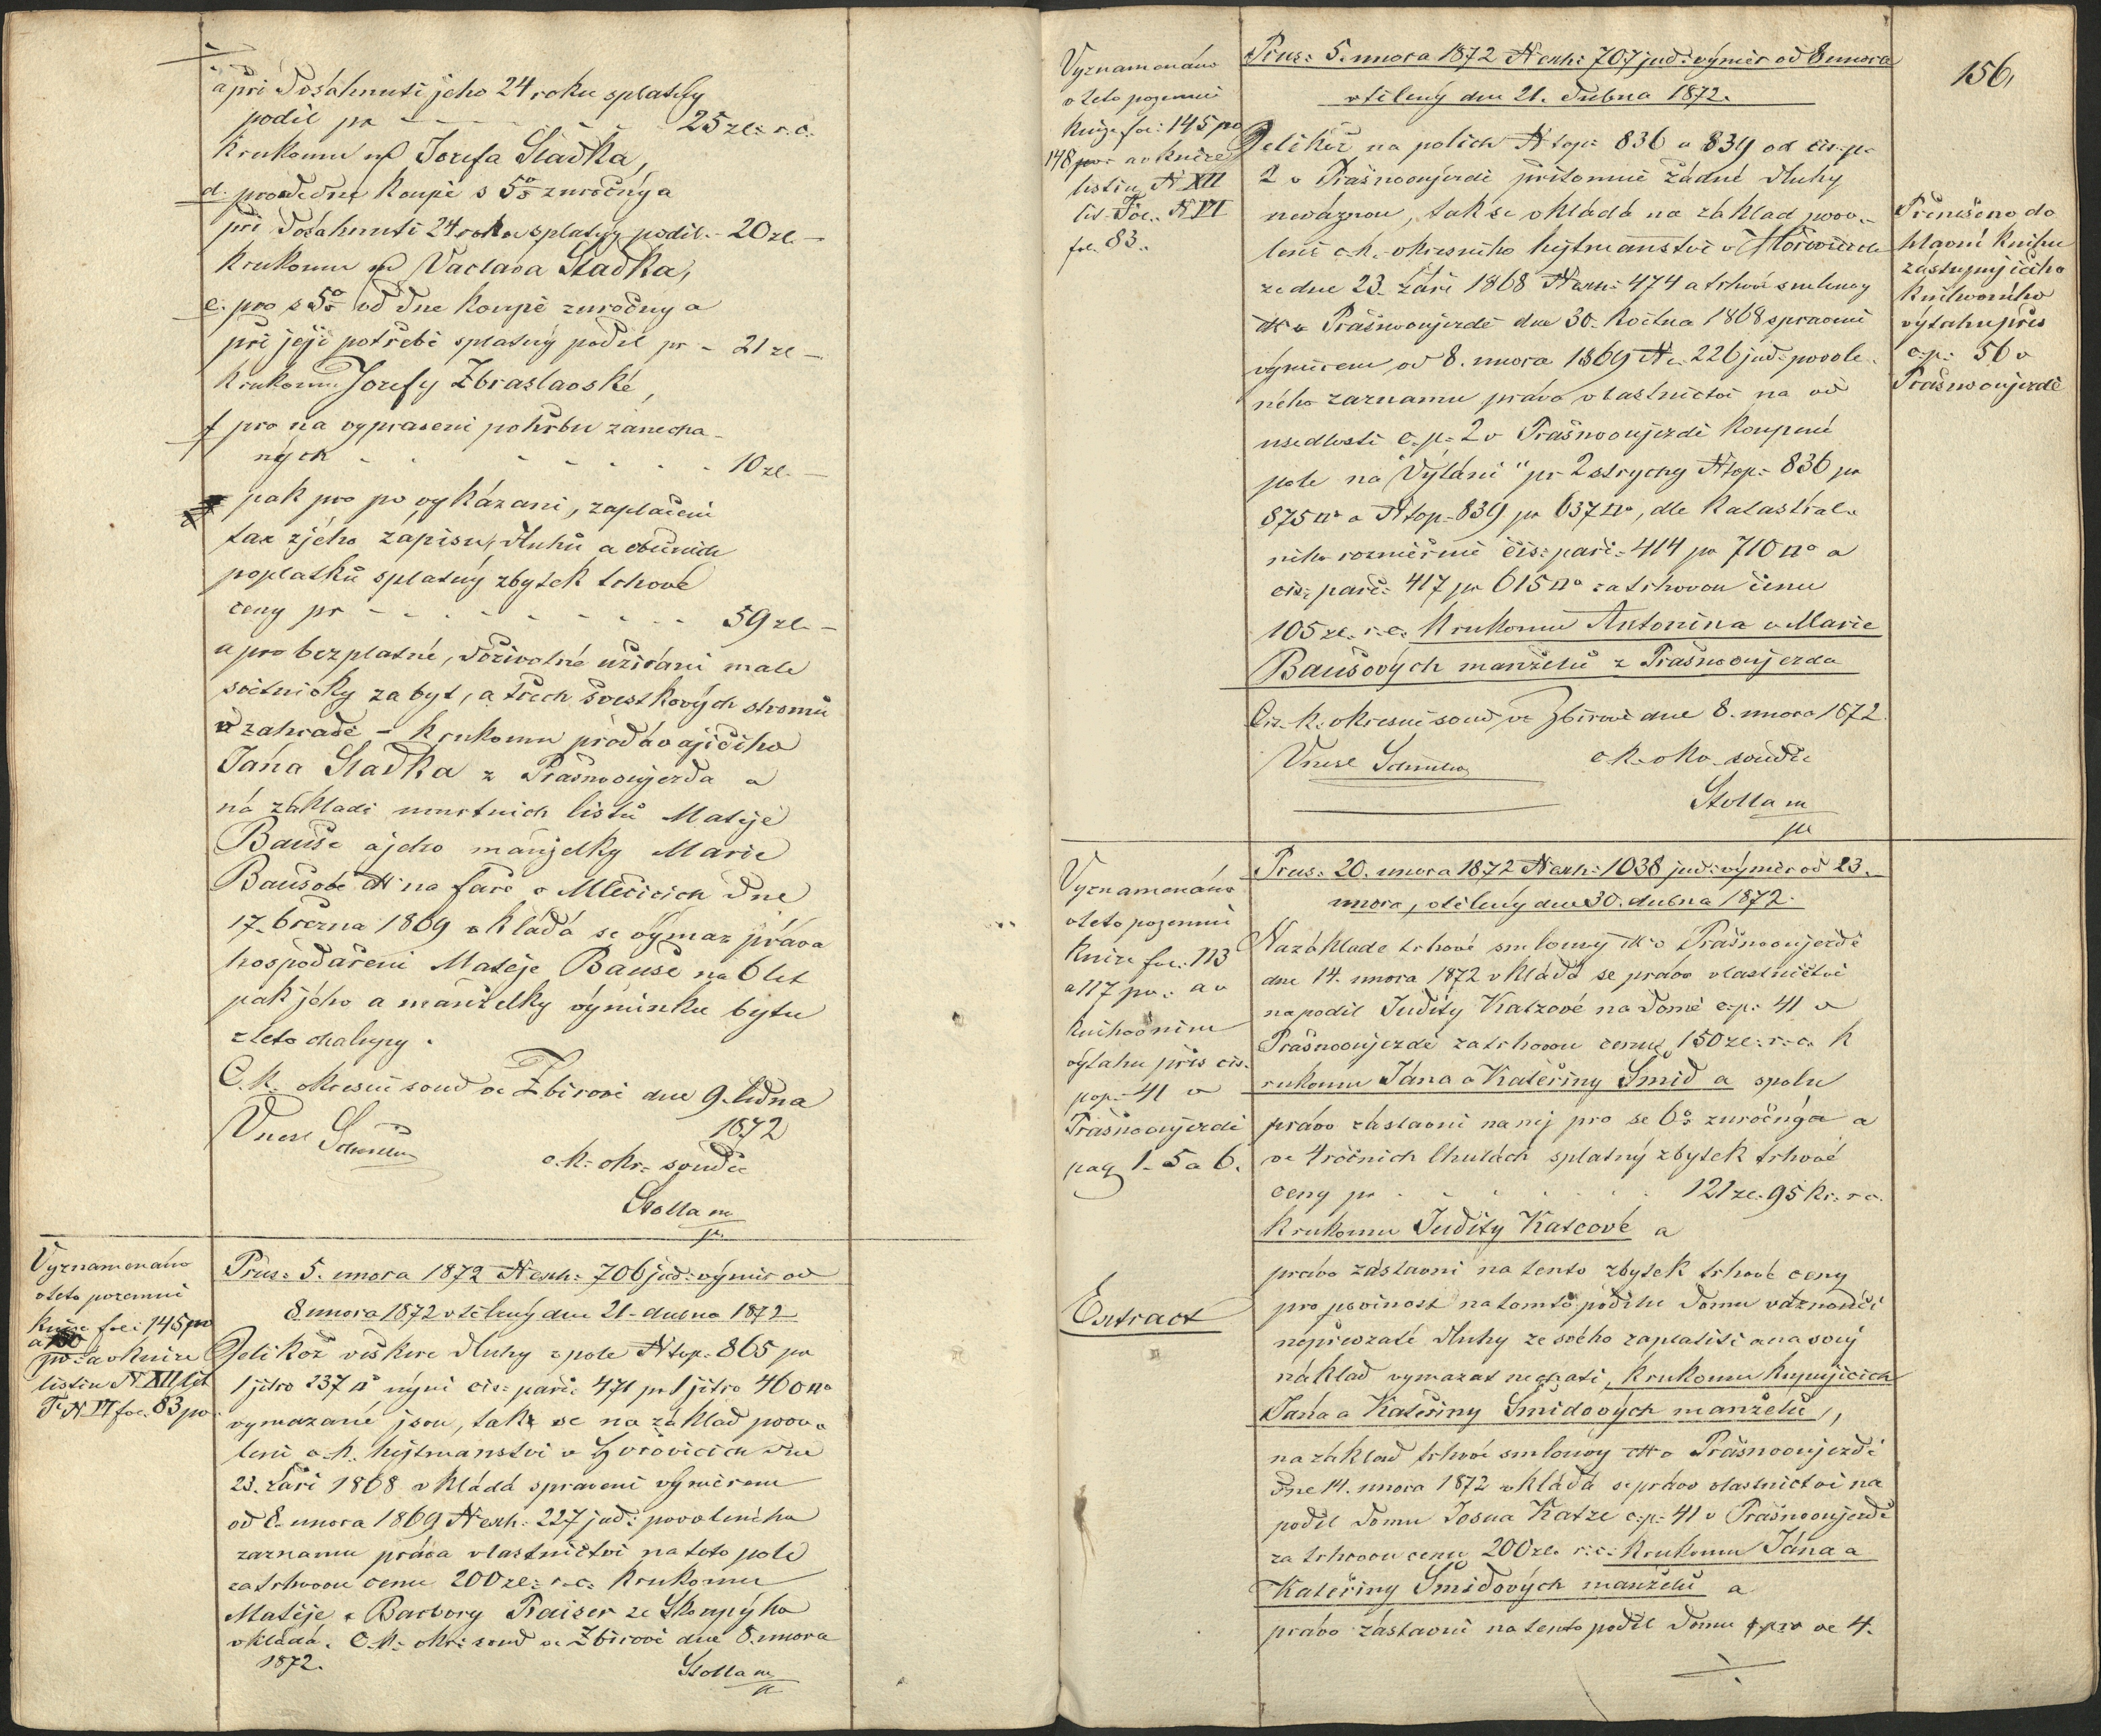 a při dosáhnutí jeho 24 roku splatný
podíl pr - - - - - 25 zl: r. c.
k rukoum Josefa Sladka,
d. pro ode dne koupě s 5% zuročný a
při dosáhnutí 24 roku splatný podíl - 20 zl. -
k rukoum Vaclava Sladka,
e. pro s 5% od dne koupě zuročny a
při její potřebě splatný podíl pr - 21 zl -
k rukoum Josefy Zbraslavské,
f pro na vypravení pohřbu zanecha-
ných - - - - - - 10 zl. -
pak pro po vykázaní, zaplacení
tax zjeho zápisu, dluhů a obecních
poplatků splatný zbytek trhové
ceny pr - - - - - - 59 zl. -
a pro bezplatné, doživotné užívání malé
světničky za byt, a třech švestkových stromů
v zahradě - k rukoum prodávajícího
Jána Sladka z Prašnooujezda a
na základě umrtních listů Matěje
Bauše a jeho manželky Marie
Baušové na faře v Mlečicích dne
17. března 1869 vkládá se výmaz práva
hospodaření Matěje Bauše na 6 let
pak jeho a manželky výminku bytu
z této chalupy.
C. k. okresní soud ve Zbirově dne 9. ledna
1872
Vnesl
c. k. okr. soudce
Stolla m
p.
Vyznamenáno
v této pozemní
knize fol: 145 pv
a 150
pv: a v knize
listin N XII lit
T. N. VI fol. 83 pv.
Prus: 5. unora 1872 N exh: 706 jud: výměr od
8 unora 1872 vtělený dne 21. dubna 1872
Jelikož veškere dluhy z pole N top: 865 pr
1 jitro 237 □° nýní čis: parč: 471 pr 1 jitro 460 □°
vymazané jsou, tak se na základ povo-
lení c. k. hejtmanství v Hořovicích dne
23. září 1868 vkládá spravení výměrem
od 8. unora 1869 N exh: 227 jud: povoleného
zaznamu práva vlastnictví na toto pole
za trhovou cenu 200 zl: r. c: k rukoum
Matěje a Barbory Praiser ze Skoupýho
vkládá. C. k. okr: soud ve Zbirově dne 8. unora
1872.
Stolla m
p.
156,
Vyznamenáno
v této pozemní
knize fol: 145 pv
148 pv: a v knize
listin N XII
lit. T. N VI
fol. 83.
Prus: 5. unora 1872 N exh: 707 jud: výměr od 8 unora
vtělený dne 21. dubna 1872.
Jelikož na polích N top: 836 a 839 od čis. p.
2 v Prašnooujezdě přítomně žádné dluhy
neváznou, tak se vkládá na základ povo-
lení c. k. okresního hejtmanství v Hořovicích
ze dne 23. září 1868 N exh: 474 a trhové smlouvy
v Prašnooujezdě dne 30. května 1868 spravení
výměrem od 8. unora 1869 N. 226 jud: povole-
ného zaznamu práva vlastnictví na od
usedlosti č. p. 2 v Prašnooujezdě koupené
pole na "Výláni" pr 2 strychy N top: 836 pr
875 □° a N top: 839 pr 637 □°, dle katastral-
ního rozměření čis: parč: 414 pr 710 □° a
čis: parč: 417 pr 615 □° za trhovou cenu
105 zl. r. c. k rukoum Antonína a Marie
Baušových manželů z Prašnooujezda
Cis. k. okresní soud ve Zbirově dne 8. unora 1872.
Vnesl
c. k. okr. soudce
Stolla m
p.
Přenešeno do
hlavní knihu
zástupujícího
knihovního
výtahu přes
č. p: 56 v
Prašnooujezdě
Vyznamenáno
v této pozemní
knize fol: 113
a 117 pv. a v
knihovním
výtahu přes čis.
pop: 41 v
Prašnooujezdě
pag 1. 5 a 6.
Prus: 20. unora 1872 N exh: 1038 jud: výměr od 23.
unora, vtělený dne 30. dubna 1872.
Na základe trhové smlouvy v Prašnooujezdě
dne 14. unora 1872 vkládá se právo vlastnictví
na podíl Judity Katzové na domě č. p. 41 v
Prašnooujezdě za trhovou cenu 150 zl: r. c. k
rukoum Jána a Kateřiny Šmid a spolu
právo zástavní na něj pro se 6% zuročný a
ve 4 ročních lhutách splatný zbytek trhové
ceny pr - - - - - 121 zl. 95 kr. r. c.
k rukoum Judity Katcové a
Extract
právo zástavní na tento zbytek trhové ceny
pro povinost na tomto podílu domu váznoucí
nepřevzaté dluhy ze svého zaplatiti a na svůj
náklad vymazat nechati, k rukoum kupujících
Jána a Kateřiny Šmidových manželů,
na základ trhové smlouvy v Prašnooujezdě
dne 14. unora 1872 vkládá se právo vlastnictví na
podíl domu Josua Katze č. p: 41 v Prašnooujezdě
za trhovou cenu 200 zl. r. c. k rukoum Jána a
Kateřiny Šmidových manželů a
právo zástavní na tento podíl domu pro ve 4.